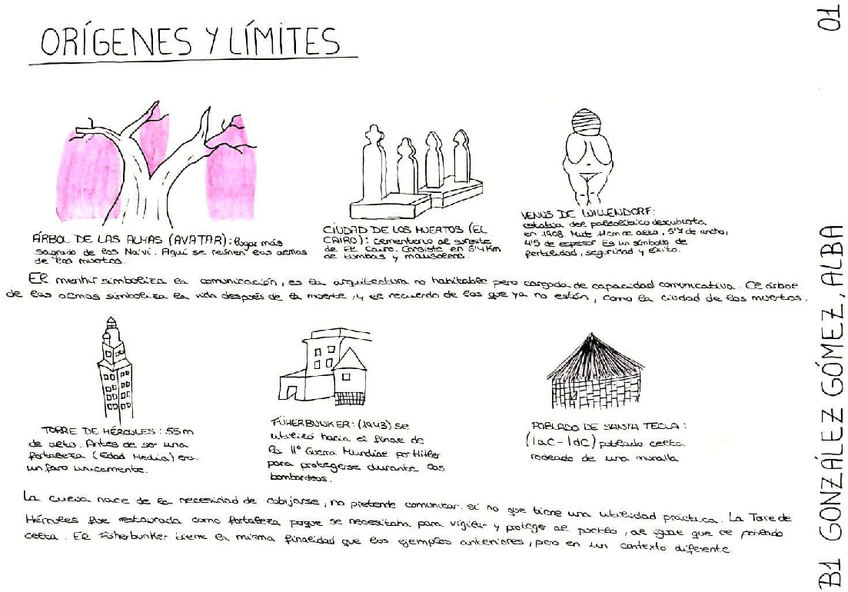 ORÍGENES Y LÍMITES
ÁRBOL DE LAS ALMAS (AVATAR): lugar más
sagrado de los Na'vi. Aquí se reúnen las almas
de los muertos.
CIUDAD DE LOS MUERTOS (EL
CAIRO): cementerio al sureste
de El Cairo. Consiste en 6'4 Km
de tumbas y mausoleos
VENUS DE WILLENDORF:
estatua del paleolítico descubierta
en 1908. Mide 11 cm de alto, 5'7 de ancho,
4'5 de espesor. Es un símbolo de
fertilidad, seguridad y éxito.
El menhir simboliza la comunicación, es la arquitectura no habitable pero cargada de capacidad comunicativa. El árbol
de las almas simboliza la vida después de la muerte, y el recuerdo de los que ya no están, como la ciudad de los muertos.
TORRE DE HÉRCULES: 55m
de alto. Antes de ser una
fortaleza (Edad Media) era
un faro unicamente.
FÜHERBUNKER: (1943) se
utilizó hacia el final de
la IIª Guerra Mundial por Hitler
para protegerse durante los
bombardeos.
POBLADO DE SANTA TECLA:
(IaC-IdC) poblado celta
rodeado de una muralla
La cueva nace de la necesidad de cobijarse, no pretende comunicar, si no que tiene una utilidad práctica. La Torre de
Hércules fue restaurada como fortaleza porque se necesitaba para vigilar y proteger al pueblo, al igual que el poblado
celta. El Füherbunker tiene la misma finalidad que los ejemplos anteriores, pero en un contexto diferente
B1 GONZÁLEZ GÓMEZ, ALBA 01